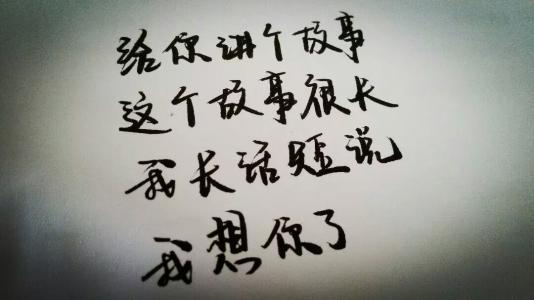 给你讲个故事
这个故事很长
我长话短说
我想你了